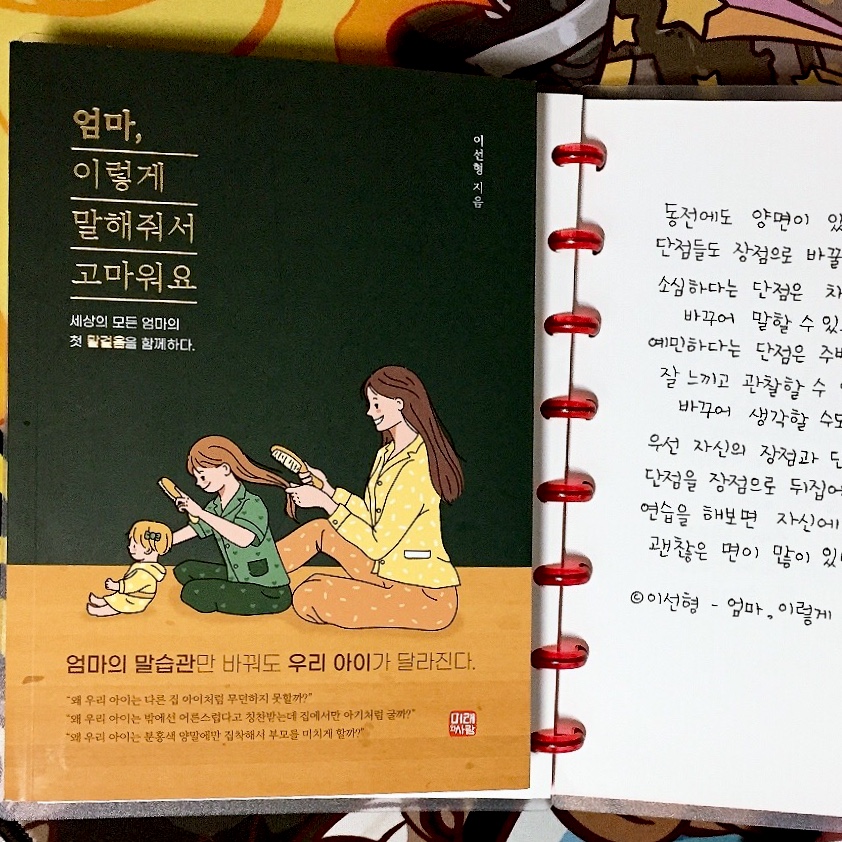 엄마,
이렇게
말해줘서
고마워요
세상의 모든 엄마의
첫 말걸음을 함께하다.
이선형 지음
엄마의 말습관만 바꿔도 우리 아이가 달라진다.
“왜 우리 아이는 다른 집 아이처럼 무던하지 못할까?”
“왜 우리 아이는 밖에선 어른스럽다고 칭찬받는데 집에서만 아기처럼 굴까?”
“왜 우리 아이는 분홍색 양말에만 집착해서 부모를 미치게 할까?”
미래
와사람
동전에도 양면이
단점들도 장점으로 바꿀
소심하다는 단점은
바꾸어 말할 수 있
예민하다는 단점은 주변
잘 느끼고 관찰할 수
바꾸어 생각할 수도
우선 자신의 장점과
단점을 장점으로 뒤집어
연습을 해보면 자신에
괜찮은 면이 많이 있
©이선형 - 엄마, 이렇게